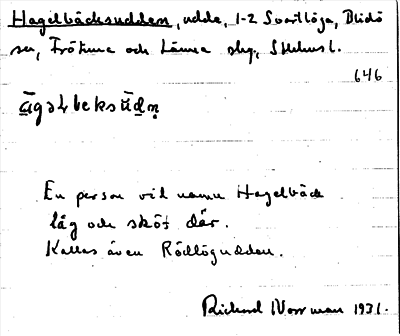 Hagelbäcksudden, udde, 1-2 Svartlöga, Blidö
sn, Frötuna och Länna skg, Sthlms l.
646
āgəɫbeksūdṇ
En person vid namn Hagelbäck
låg och sköt där.
Kallas även Rödlögudden.
Rickard Norrman 1931.